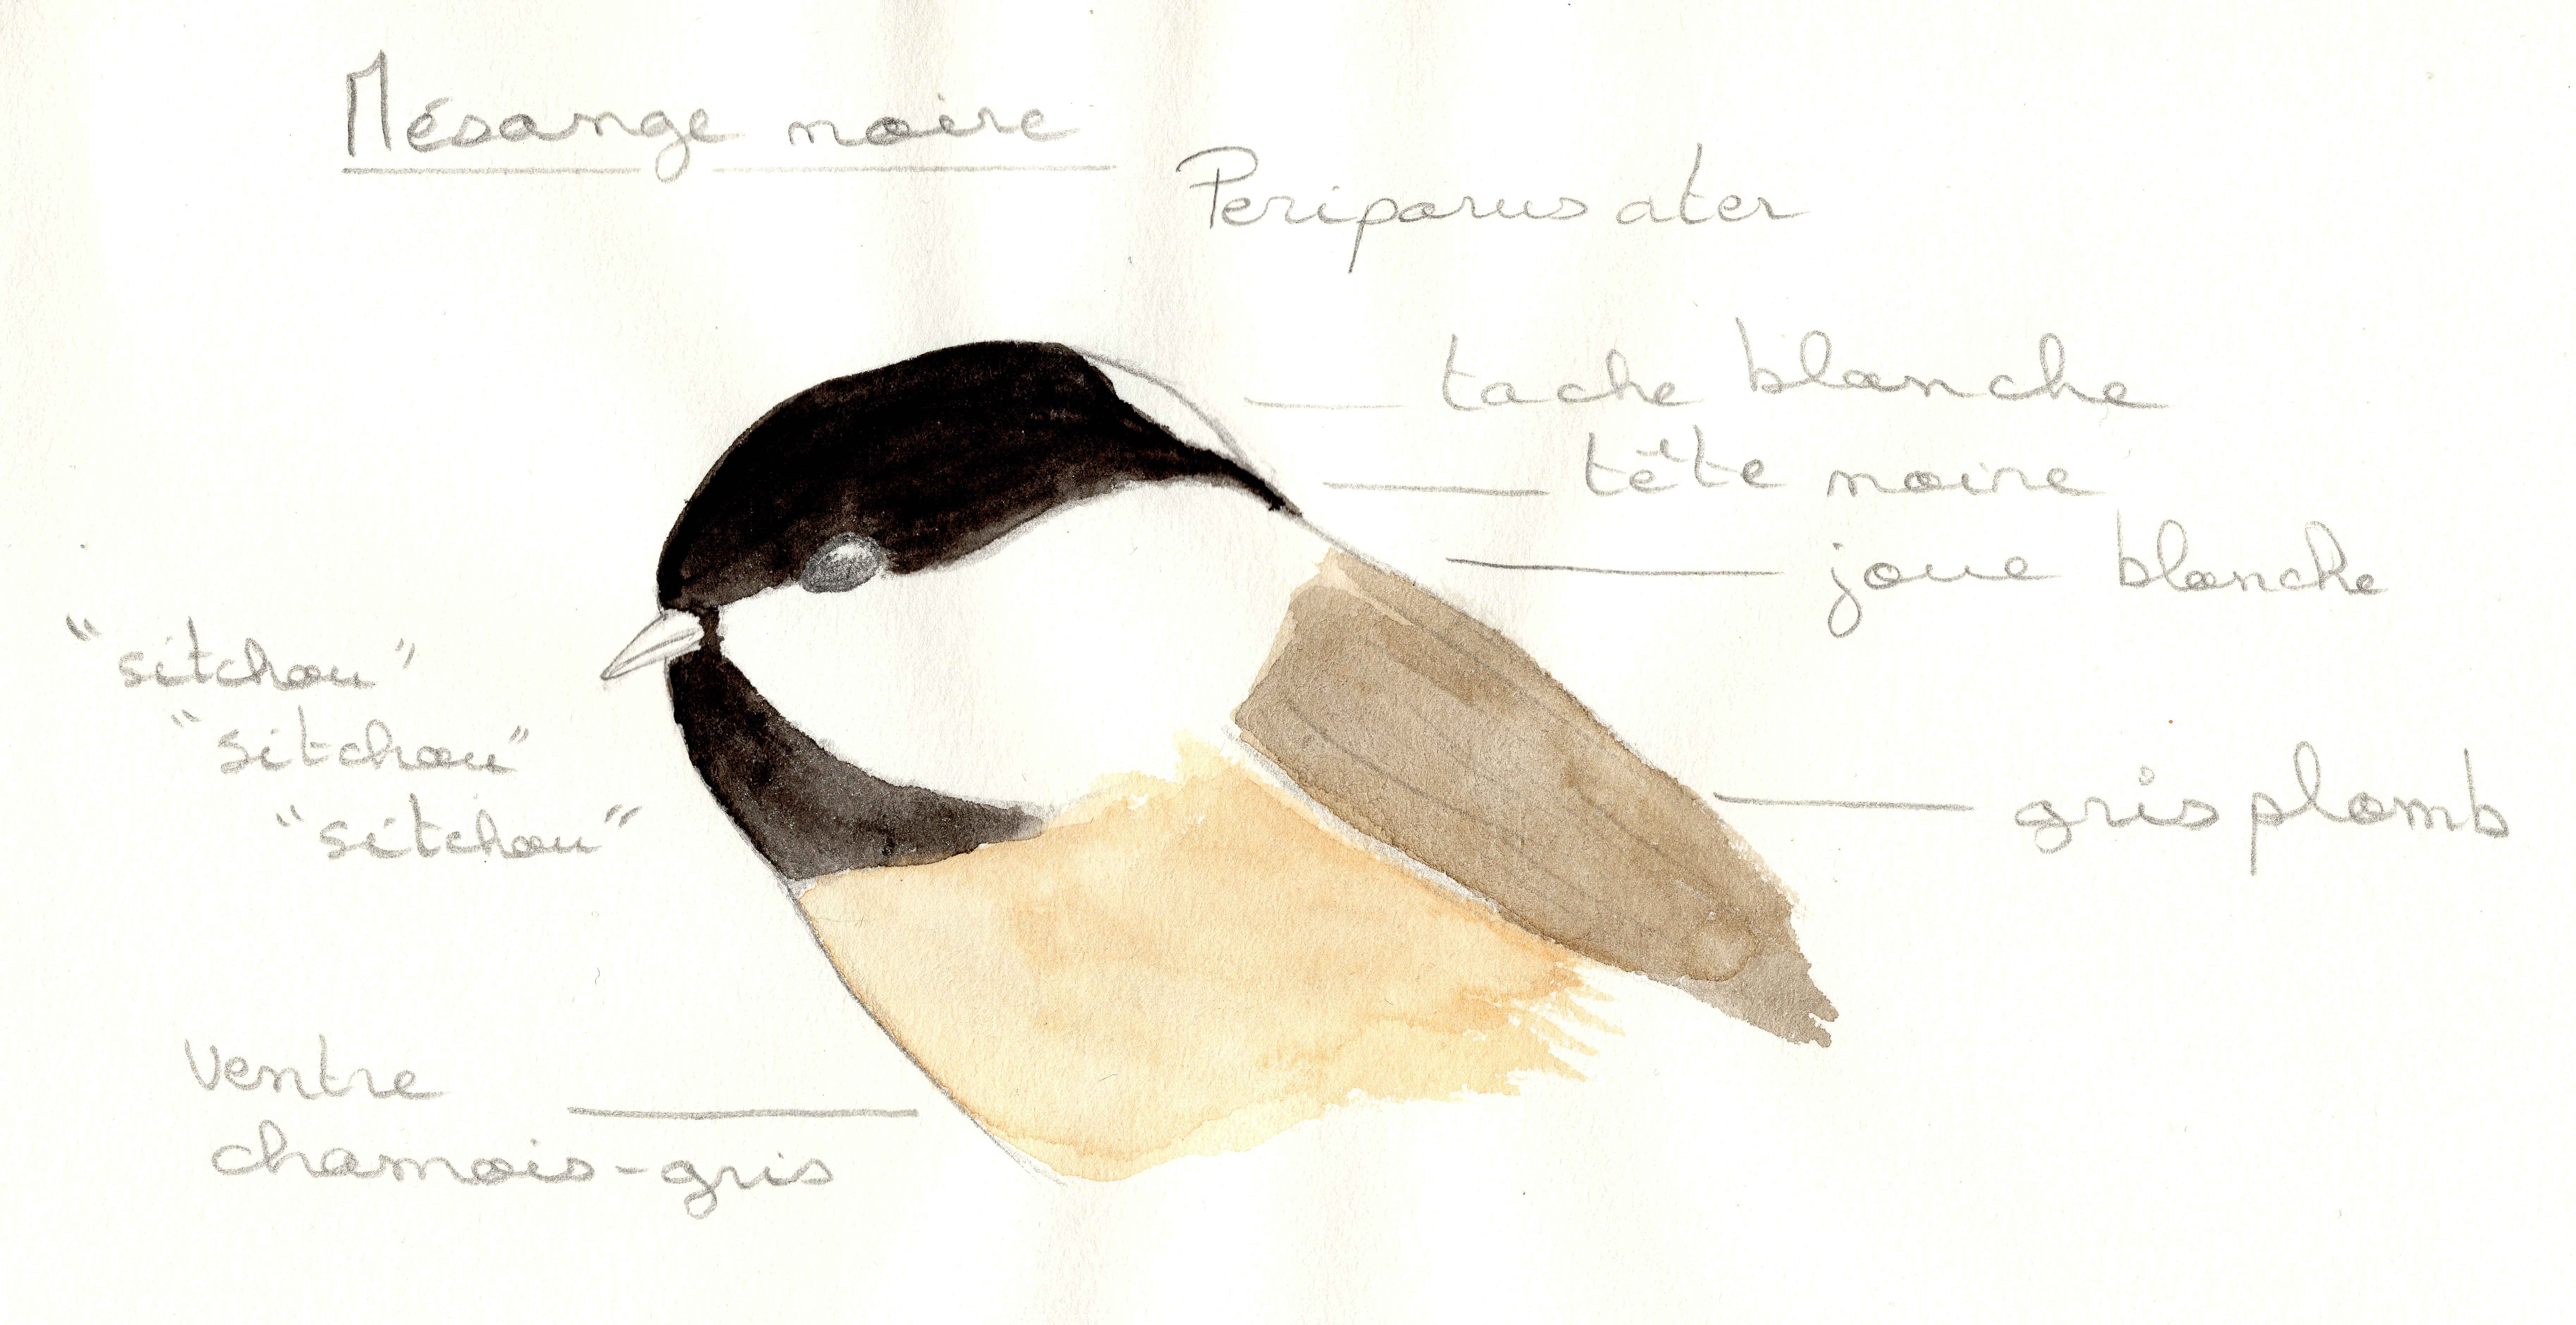 Mésange noire
Periparus ater
tache blanche
tête noire
joue blanche
"sitchou"
"sitchou"
"sitchou"
gris plomb
ventre
chamois-gris